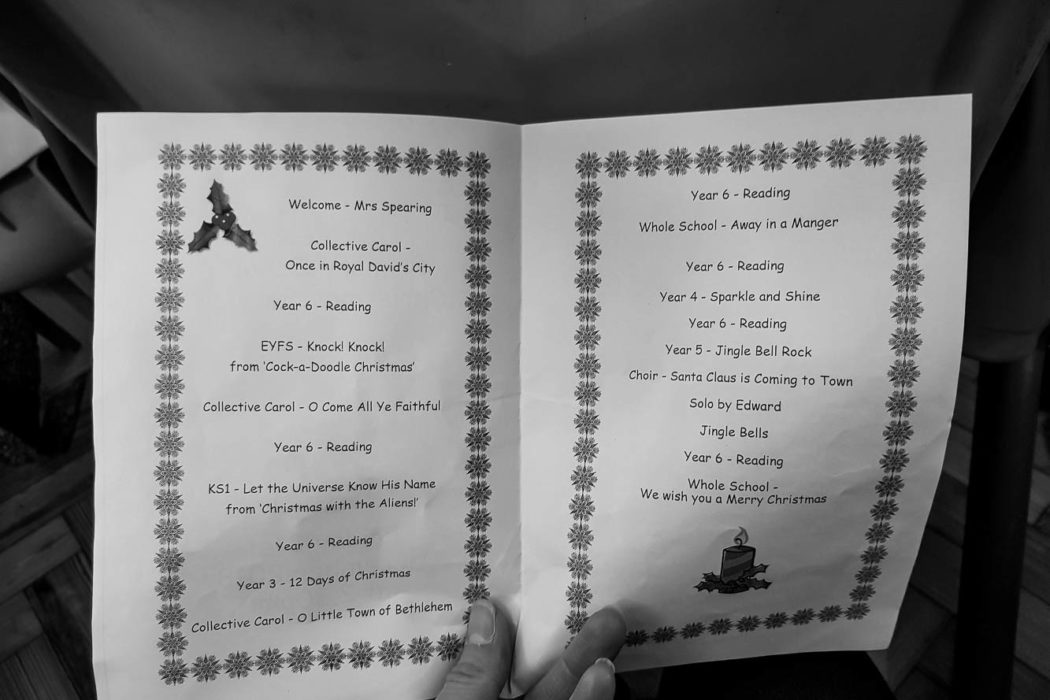 Welcome - Mrs Spearing
Collective Carol -
Once in Royal David's City
Year 6 - Reading
EYFS - Knock! Knock!
from 'Cock-a-Doodle Christmas'
Collective Carol - O Come All Ye Faithful
Year 6 - Reading
KS1 - Let the Universe Know His Name
from 'Christmas with the Aliens!'
Year 6 - Reading
Year 3 - 12 Days of Christmas
Collective Carol - O Little Town of Bethlehem
Year 6 - Reading
Whole School - Away in a Manger
Year 6 - Reading
Year 4 - Sparkle and Shine
Year 6 - Reading
Year 5 - Jingle Bell Rock
Choir - Santa Claus is Coming to Town
Solo by Edward
Jingle Bells
Year 6 - Reading
Whole School -
We wish you a Merry Christmas